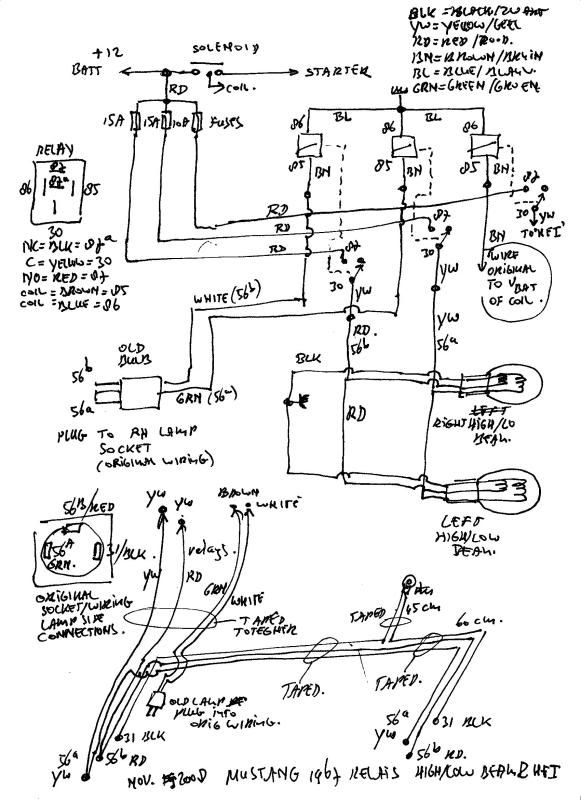 BLK = BLACK/ZWART
YW = YELLOW/GEEL
RD = RED/ROOD.
BN = BROWN/BRUIN
BL = BLUE/BLAUW.
GRN = GREEN/GROEN
+12
BATT
SOLENOID
STARTER
COIL.
RD
15A
15A
10A
FUSES
BL
BL
86
86
86
85
85
85
BN
BN
RELAY
87
87a
86
85
30
NC = BLK = 87a
C = YELLOW = 30
NO = RED = 87
COIL = BROWN = 85
COIL = BLUE = 86
RD
RD
RD
87
87
87
30
30
30
YW
TO HEI
BN
WIRE
ORIGINAL
TO VBAT
OF COIL.
YW
YW
WHITE (56b)
GRN (56a)
RD.
56b
56a
OLD
BULB
56b
56a
PLUG TO RH LAMP
SOCKET
(ORIGINAL WIRING)
BLK
RD
LEFT
RIGHT HIGH/LO
BEAM.
LEFT
HIGH/LOW
BEAM.
56B/RED
56A
GRN.
31/BLK.
ORIGINAL
SOCKET/WIRING
LAMP SIDE
CONNECTIONS.
YW
YW
BROWN
WHITE
relays.
YW
RD
GRN
WHITE
TAPED
TOTEGHER
45 cm
TAPED
60 cm.
TAPED.
TAPED.
OLD LAMP
PLUG INTO
ORIG WIRING.
31 BLK
56b RD
56a
YW
56a
YW
31 BLK
56b RD.
NOV. 2008 MUSTANG 1967 RELAIS HIGH/LOW BEAM & HEI